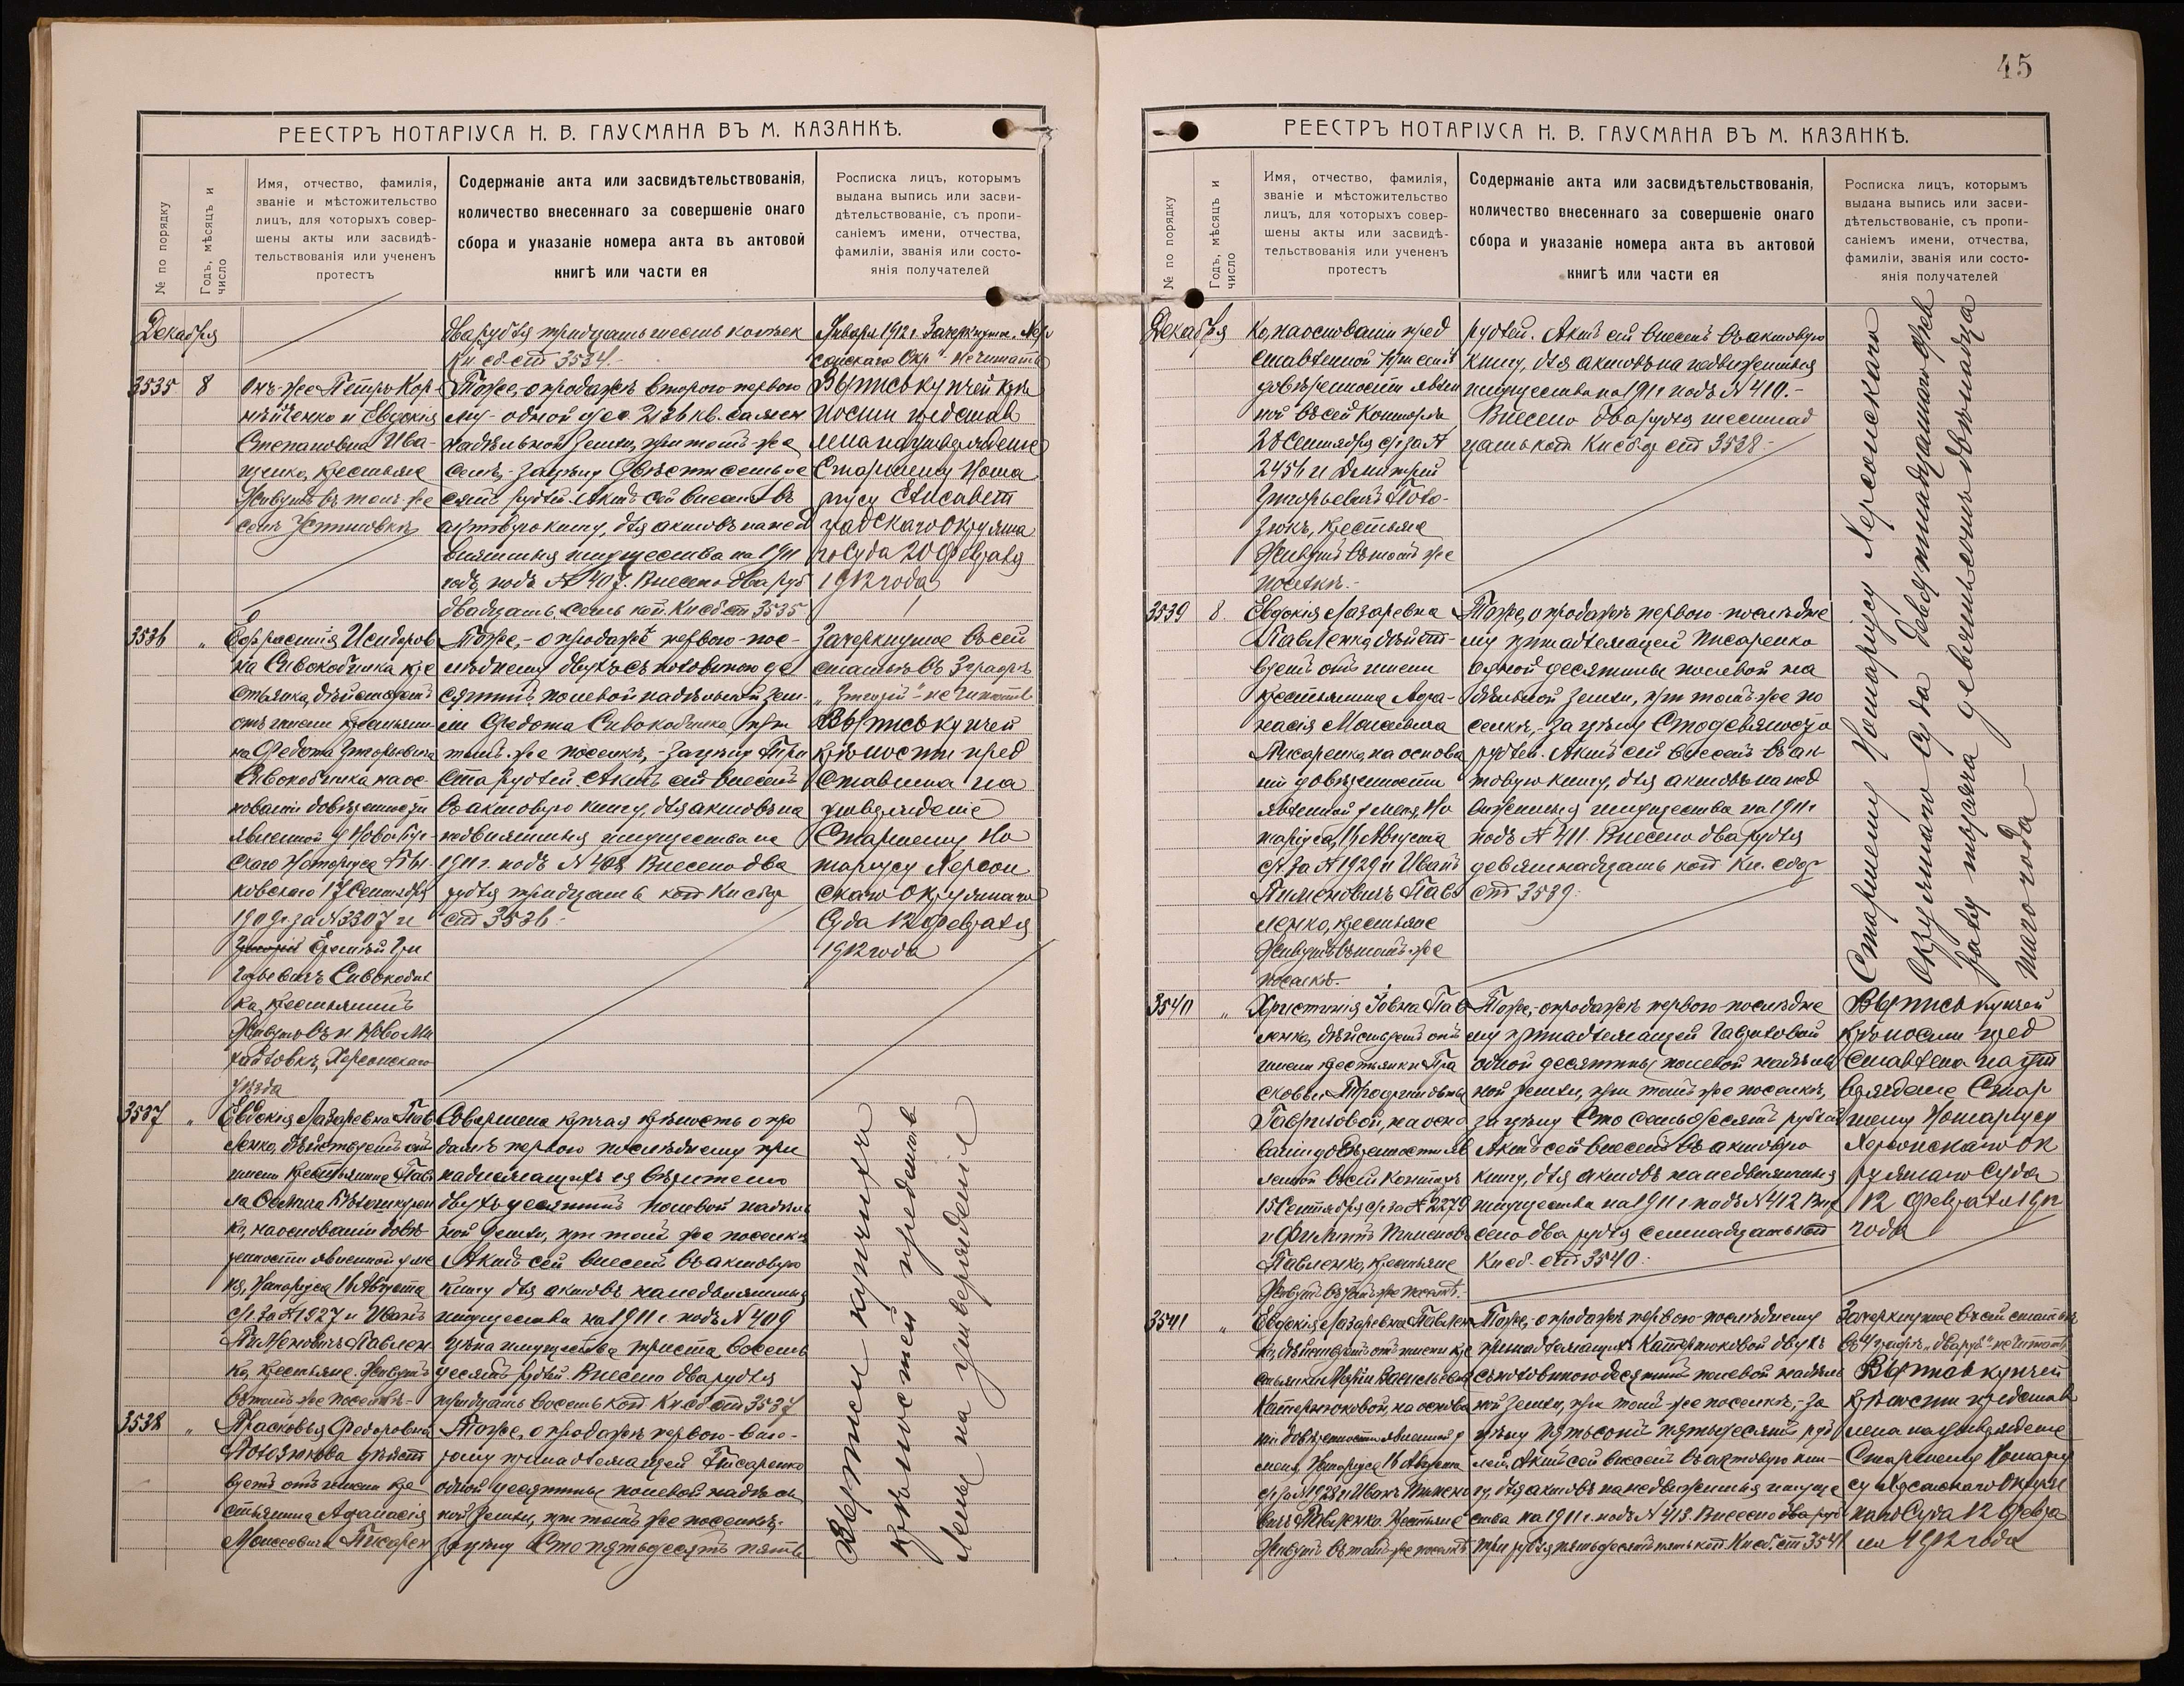 РЕЕСТРЪ НОТАРІУСА Н. В. ГАУСМАНА ВЪ М. КАЗАНКѢ.
№ по порядку
Годъ, мѣсяцъ и
число
Имя, отчество, фамилія,
званіе и мѣстожительство
лицъ, для которыхъ совер-
шены акты или засвидѣ-
тельствованія или учененъ
протестъ
Содержаніе акта или засвидѣтельствованія,
количество внесеннаго за совершеніе онаго
сбора и указаніе номера акта въ актовой
книгѣ или части ея
Росписка лицъ, которымъ
выдана выпись или засви-
дѣтельствованіе, съ пропи-
саніемъ имени, отчества,
фамиліи, званія или состо-
янія получателей
Декабря
два рубля тридцать шесть копѣек
Кн сб ст 3534.
Января 1912 г. Зачеркнутое
Окр" не читать
3535 8
Онъ-же Петръ Кор-
нѣйченко и Евдокія
Степановна Ива-
щенко, крестьяне
Живутъ въ томъ-же
селѣ Устиновкѣ
Тоже, о продажѣ второго первому
одной дес. кв. сажен
надѣльной земли, при томъ-же
селѣ, за цѣну Двѣсти семьде
сятъ рублей. Актъ сей внесенъ въ
актовую книгу, для актовъ на нед
вижимыя имущества на 1911
годъ подъ № 407. Внесено два руб
двадцать семь коп. Кн сб ст 3535
Выпись купчей крѣ
пости представ
лена на утвержденіе
Старшему Нота
ріусу Елисавет
градскаго Окружна
го Суда 20 Февраля
1912 года
3536 "
Ефрасинія Исидоров
на Сивокобылка кре
стьянка, дѣйствуетъ
отъ имени крестьяни
на Федота Григорьевича
Сивокобылка на ос
нованіи довѣренности
явленной у Ново Буг-
скаго Нотаріуса
17 Сентября
1909 г. за № 3307 и
Григорій
Сивокобыл
ка, крестьянинъ
Живутъ въ п. Ново Ми
хайловкѣ, Херсонскаго
уѣзда
Тоже, - о продажѣ первою пос-
лѣднему двухъ съ половиною де
сятинъ полевой надѣльной зем-
ли Федота Сивокобылка при
томъ-же поселкѣ, - за цѣну Три
ста рублей. Актъ сей внесенъ
въ актовую книгу, для актовъ на
недвижимыя имущества на
1911 г. подъ № 408 Внесено два
рубля тридцать коп Кн сбор
ст 3536.
Зачеркнутое въ сей
статьѣ въ 3 графѣ
"Григорій" не читать
Выпись купчей
крѣпости пред
ставлена на
утвержденіе
Старшему Но
таріусу Херсон
скаго Окружнаго
Суда 12 Февраля
1912 года
3537 "
Евдокія Лазаревна Пав
ленко, дѣйствуетъ отъ
имени крестьянина Пав
ла
ка, на основаніи довѣ-
ренности явленной у ме
ня, Нотаріуса 16 Августа
с/г. за № 1927 и Иванъ
Пименовичъ Павлен-
ко, крестьяне. Живутъ
въ томъ же поселкѣ.
Совершена купчая крѣпость о про
дажѣ первою послѣднему при
надлежащихъ ея вѣрителю
двухъ десятинъ полевой надѣль
ной земли, при томъ же поселкѣ
Актъ сей внесенъ въ актовую
книгу для актовъ на недвижимыя
имущества на 1911 г. подъ № 409
Цѣна имущества триста восемь
десятъ рублей. Внесено два рубля
тридцать восемь коп Кн сб ст 3537
3538 "
Прасковья Федоровна
Полозюкова дѣйст
вуетъ отъ имени кре-
стьянина Афанасія
Моисеевича Писарен
Тоже, о продажѣ первою - вто-
рому принадлежащей Писаренко
одной десятины полевой надѣль
ной земли, при томъ же поселкѣ,
за цѣну Сто пятьдесятъ пять
Выписи купчихъ
крѣпостей представ
лены на утвержденіе
45
РЕЕСТРЪ НОТАРІУСА Н. В. ГАУСМАНА ВЪ М. КАЗАНКѢ.
№ по порядку
Годъ, мѣсяцъ и
число
Имя, отчество, фамилія,
званіе и мѣстожительство
лицъ, для которыхъ совер-
шены акты или засвидѣ-
тельствованія или учененъ
протестъ
Содержаніе акта или засвидѣтельствованія,
количество внесеннаго за совершеніе онаго
сбора и указаніе номера акта въ актовой
книгѣ или части ея
Росписка лицъ, которымъ
выдана выпись или засви-
дѣтельствованіе, съ пропи-
саніемъ имени, отчества,
фамиліи, званія или состо-
янія получателей
Декабря
ко, на основаніи пред
ставленной при семъ
довѣренности явлен
ной въ сей Конторѣ
28 Сентября с/г за №
2456 и Дмитрій
Григорьевичъ Поло-
зюкъ, крестьяне
Живутъ въ томъ же
поселкѣ.-
рублей. Актъ сей внесенъ въ актовую
книгу, для актовъ на недвижимыя
имущества на 1911 г подъ № 410.-
Внесено два рубля шестнад
цать коп Кн сбор ст 3538.
Старшему Нотаріусу Херсонскаго
Окружнаго Суда Двѣнадцатаго Фев
раля тысяча девятьсотъ двѣнадца
таго года
3539 8.
Евдокія Лазаревна
Павленко, дѣйст-
вуетъ отъ имени
крестьянина Афа-
насія Моисеевича
Писаренко, на основа
ніи довѣренности
явленной у меня, Но
таріуса, 16 Августа
с/г за № 1929 и Иванъ
Пименовичъ Пав
ленко, крестьяне
Живутъ въ томъ-же
поселкѣ.-
Тоже, о продажѣ первою - послѣдне
му принадлежащей Писаренко
одной десятины полевой на
дѣльной земли, при томъ-же по
селкѣ, - за цѣну Сто девяносто
рублей. Актъ сей внесенъ въ ак
товую книгу, для актовъ на нед
вижимыя имущества на 1911 г
подъ № 411. Внесено два рубля
девятнадцать коп Кн. сбор
ст 3539.
3540 "
Христинія Іовна Пав
ленко, дѣйствуетъ отъ
имени крестьянки Пра
сковьи
Гавриловой, на осно
ваніи довѣренности яв
ленной въ сей Конторѣ
15 Сентября с/г за № 2279
и Филиппъ Пименов
Павленко, крестьяне
Живутъ въ томъ же поселкѣ.
Тоже, - о продажѣ первою послѣдне
му принадлежащей Гавриловой
одной десятины полевой надѣль
ной земли, при томъ же поселкѣ,
за цѣну Сто семьдесятъ рублей
Актъ сей внесенъ въ актовую
книгу, для актовъ на недвижимыя
имущества на 1911 г. подъ № 412 Вне
сено два рубля семнадцать коп
Кн сб. ст 3540.
Выпись купчей
крѣпости пред
ставлена на ут
вержденіе Стар
шему Нотаріусу
Херсонскаго Ок
ружнаго Суда
12 Февраля 1912
года
3541 "
Евдокія Лазаревна Павлен
ко, дѣйствуетъ отъ имени кре
стьянки Маріи Васильевны
на основа
ніи довѣренности явленной у
меня, Нотаріуса 16 Августа
с/г за № 1928 и Иванъ Пимено
вичъ Павленко. Крестьяне
Живутъ въ томъ же поселкѣ
Тоже, - о продажѣ первою - послѣднему
принадлежащихъ двухъ
съ половиною десятинъ полевой надѣль
ной земли, при томъ-же поселкѣ, - за
цѣну Пятьсотъ пятьдесятъ руб
лей. Актъ сей внесенъ въ актовую кни-
гу, для актовъ на недвижимыя имуще
ства на 1911 г. подъ № 413. Внесено два руб
три рубля пятьдесятъ пять коп Кн сб. ст 3541
Зачеркнутое въ сей статьѣ
въ 4 графѣ "два руб" не читать
Выпись купчей
крѣпости представ
лена на утвержденіе
Старшему Нотаріу
су Херсонскаго Окруж
наго Суда 12 Февра
ля 1912 года